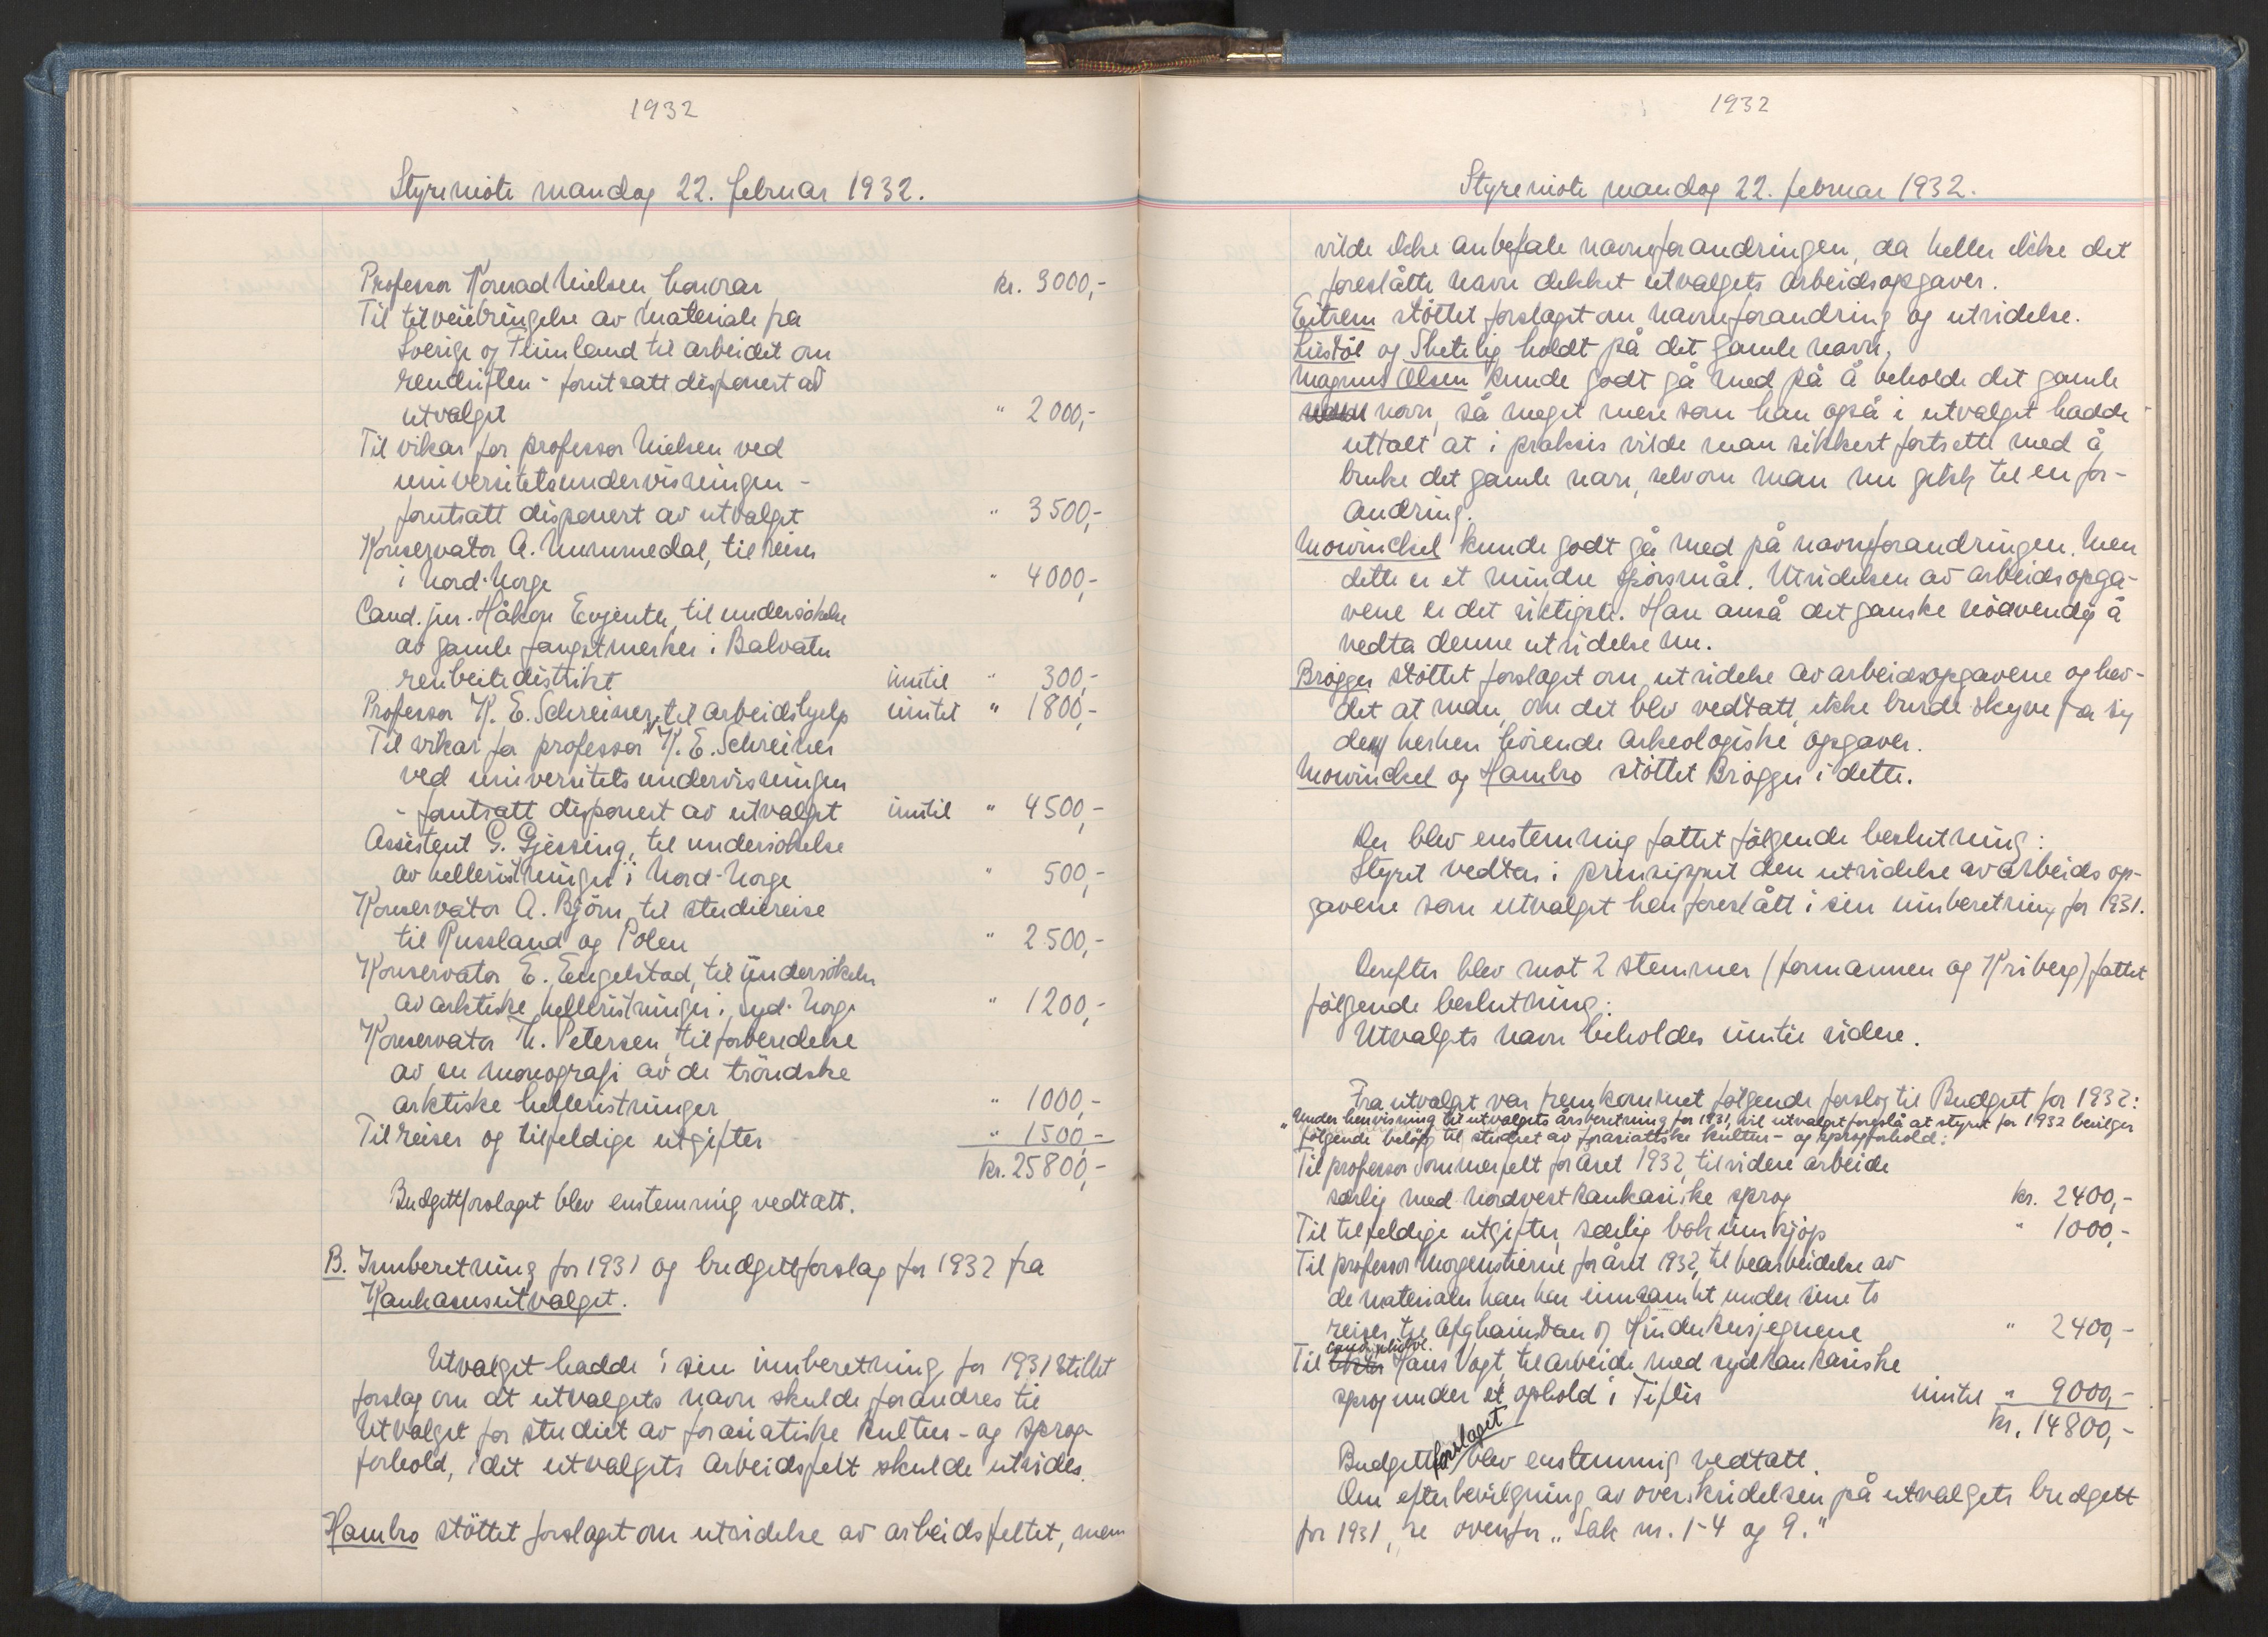 1932
Styremöte mandag 22. februar 1932.
Professor Konrad Nielsen honorar kr. 3000,-
Til tilveiebringelse av materiale fra
Sverige og Finnland til arbeidet om
rendriften - fortsatt disponert av
utvalget " 2000,-
Til vikar for professor Nielsen ved
universitetsundervisningen -
fortsatt disponert av utvalget " 3500,-
Konservator A. Nummedal, til reiser
i Nord-Norge " 4000,-
Cand. jur. Håkon Evjenth, til undersökelse
av gamle fangstmerker i Balvatn
renbeitedistrikt inntil " 300,-
Professor K. E. Schreiner, til arbeidshjelp inntil " 1800,-
Til vikar for professor K. E. Schreiner
ved universitetsundervisningen
- fortsatt disponert av utvalget inntil " 4500,-
Assistent G. Gjessing, til undersökelse
av helleristninger i Nord-Norge " 500,-
Konservator A. Björn, til studiereise
til Russland og Polen " 2500,-
Konservator E. Engelstad, til undersökelse
av arktiske helleristninger i Syd-Norge " 1200,-
Konservator Th. Petersen, til forberedelse
av en monografi av de tröndske
arktiske helleristninger " 1000,-
Til reiser og tilfeldige utgifter " 1500,-
kr. 25800,-
Budgettforslaget blev enstemmig vedtatt.
B. Innberetning for 1931 og budgettforslag for 1932 fra
Kaukasusutvalget.
Utvalget hadde i sin innberetning for 1931 stillet
forslag om at utvalgets navn skulde forandres til
Utvalget for studiet av forasiatiske kultur- og sprog-
forhold, idet utvalgets arbeidsfelt skulde utvides.
Hambro stöttet forslaget om utvidelse av arbeidsfeltet, men
1932
Styremöte mandag 22. februar 1932.
vilde ikke anbefale navneforandringen, da heller ikke det
foreslåtte navn dekket utvalgets arbeidsopgaver.
Eitrem stöttet forslaget om navneforandring og utvidelse.
Liestöl og Shetelig holdt på det gamle navn.
Magnus Olsen kunde godt gå med på å beholde det gamle
navn, så meget mere som han også i utvalget hadde
uttalt at i praksis vilde man sikkert fortsette med å
bruke det gamle navn, selvom man nu gikk til en for-
andring.
Mowinckel kunde godt gå med på navneforandringen. Men
dette er et mindre spörsmål. Utvidelsen av arbeidsopga-
vene er det viktigste. Han anså det ganske nödvendig å
vedta denne utvidelse nu.
Brögger stöttet forslaget om utvidelse av arbeidsopgavene og hev-
det at man, om det blev vedtatt, ikke burde skyve fra sig
de herhen hörende arkeologiske opgaver.
Mowinckel og Hambro stöttet Brögger i dette.
Der blev enstemmig fattet fölgende beslutning:
Styret vedtar i prinsippet den utvidelse av arbeidsop-
gavene som utvalget har foreslått i sin innberetning for 1931.
Derefter blev mot 2 stemmer (formannen og Friberg) fattet
fölgende beslutning:
Utvalgets navn beholdes inntil videre.
Fra utvalget var fremkommet fölgende forslag til Budgett for 1932:
"Under henvisning til utvalgets årsberetning for 1931, vil utvalget foreslå at styret for 1932 bevilger
fölgende belöp til studiet av forasiatiske kultur- og sprogforhold:
Til professor Sommerfelt for året 1932, til videre arbeide
særlig med nordvestkaukasiske sprog kr. 2400,-
Til tilfeldige utgifter, særlig bokinnkjöp " 1000,-
Til professor Morgenstierne for året 1932, til bearbeidelse av
de materialer han har innsamlet under sine to
reiser til Afghanistan og Hindukusjegnene " 2400,-
cand. philol.
Til Hans Vogt, til arbeide med sydkaukasiske
sprog under et ophold i Tiflis inntil " 9000,-
kr. 14800,-
Budgettforslaget blev enstemmig vedtatt.
Om efterbevilgning av overskridelsen på utvalgets budgett
for 1931, se ovenfor "Sak nr. 1-4 og 9."